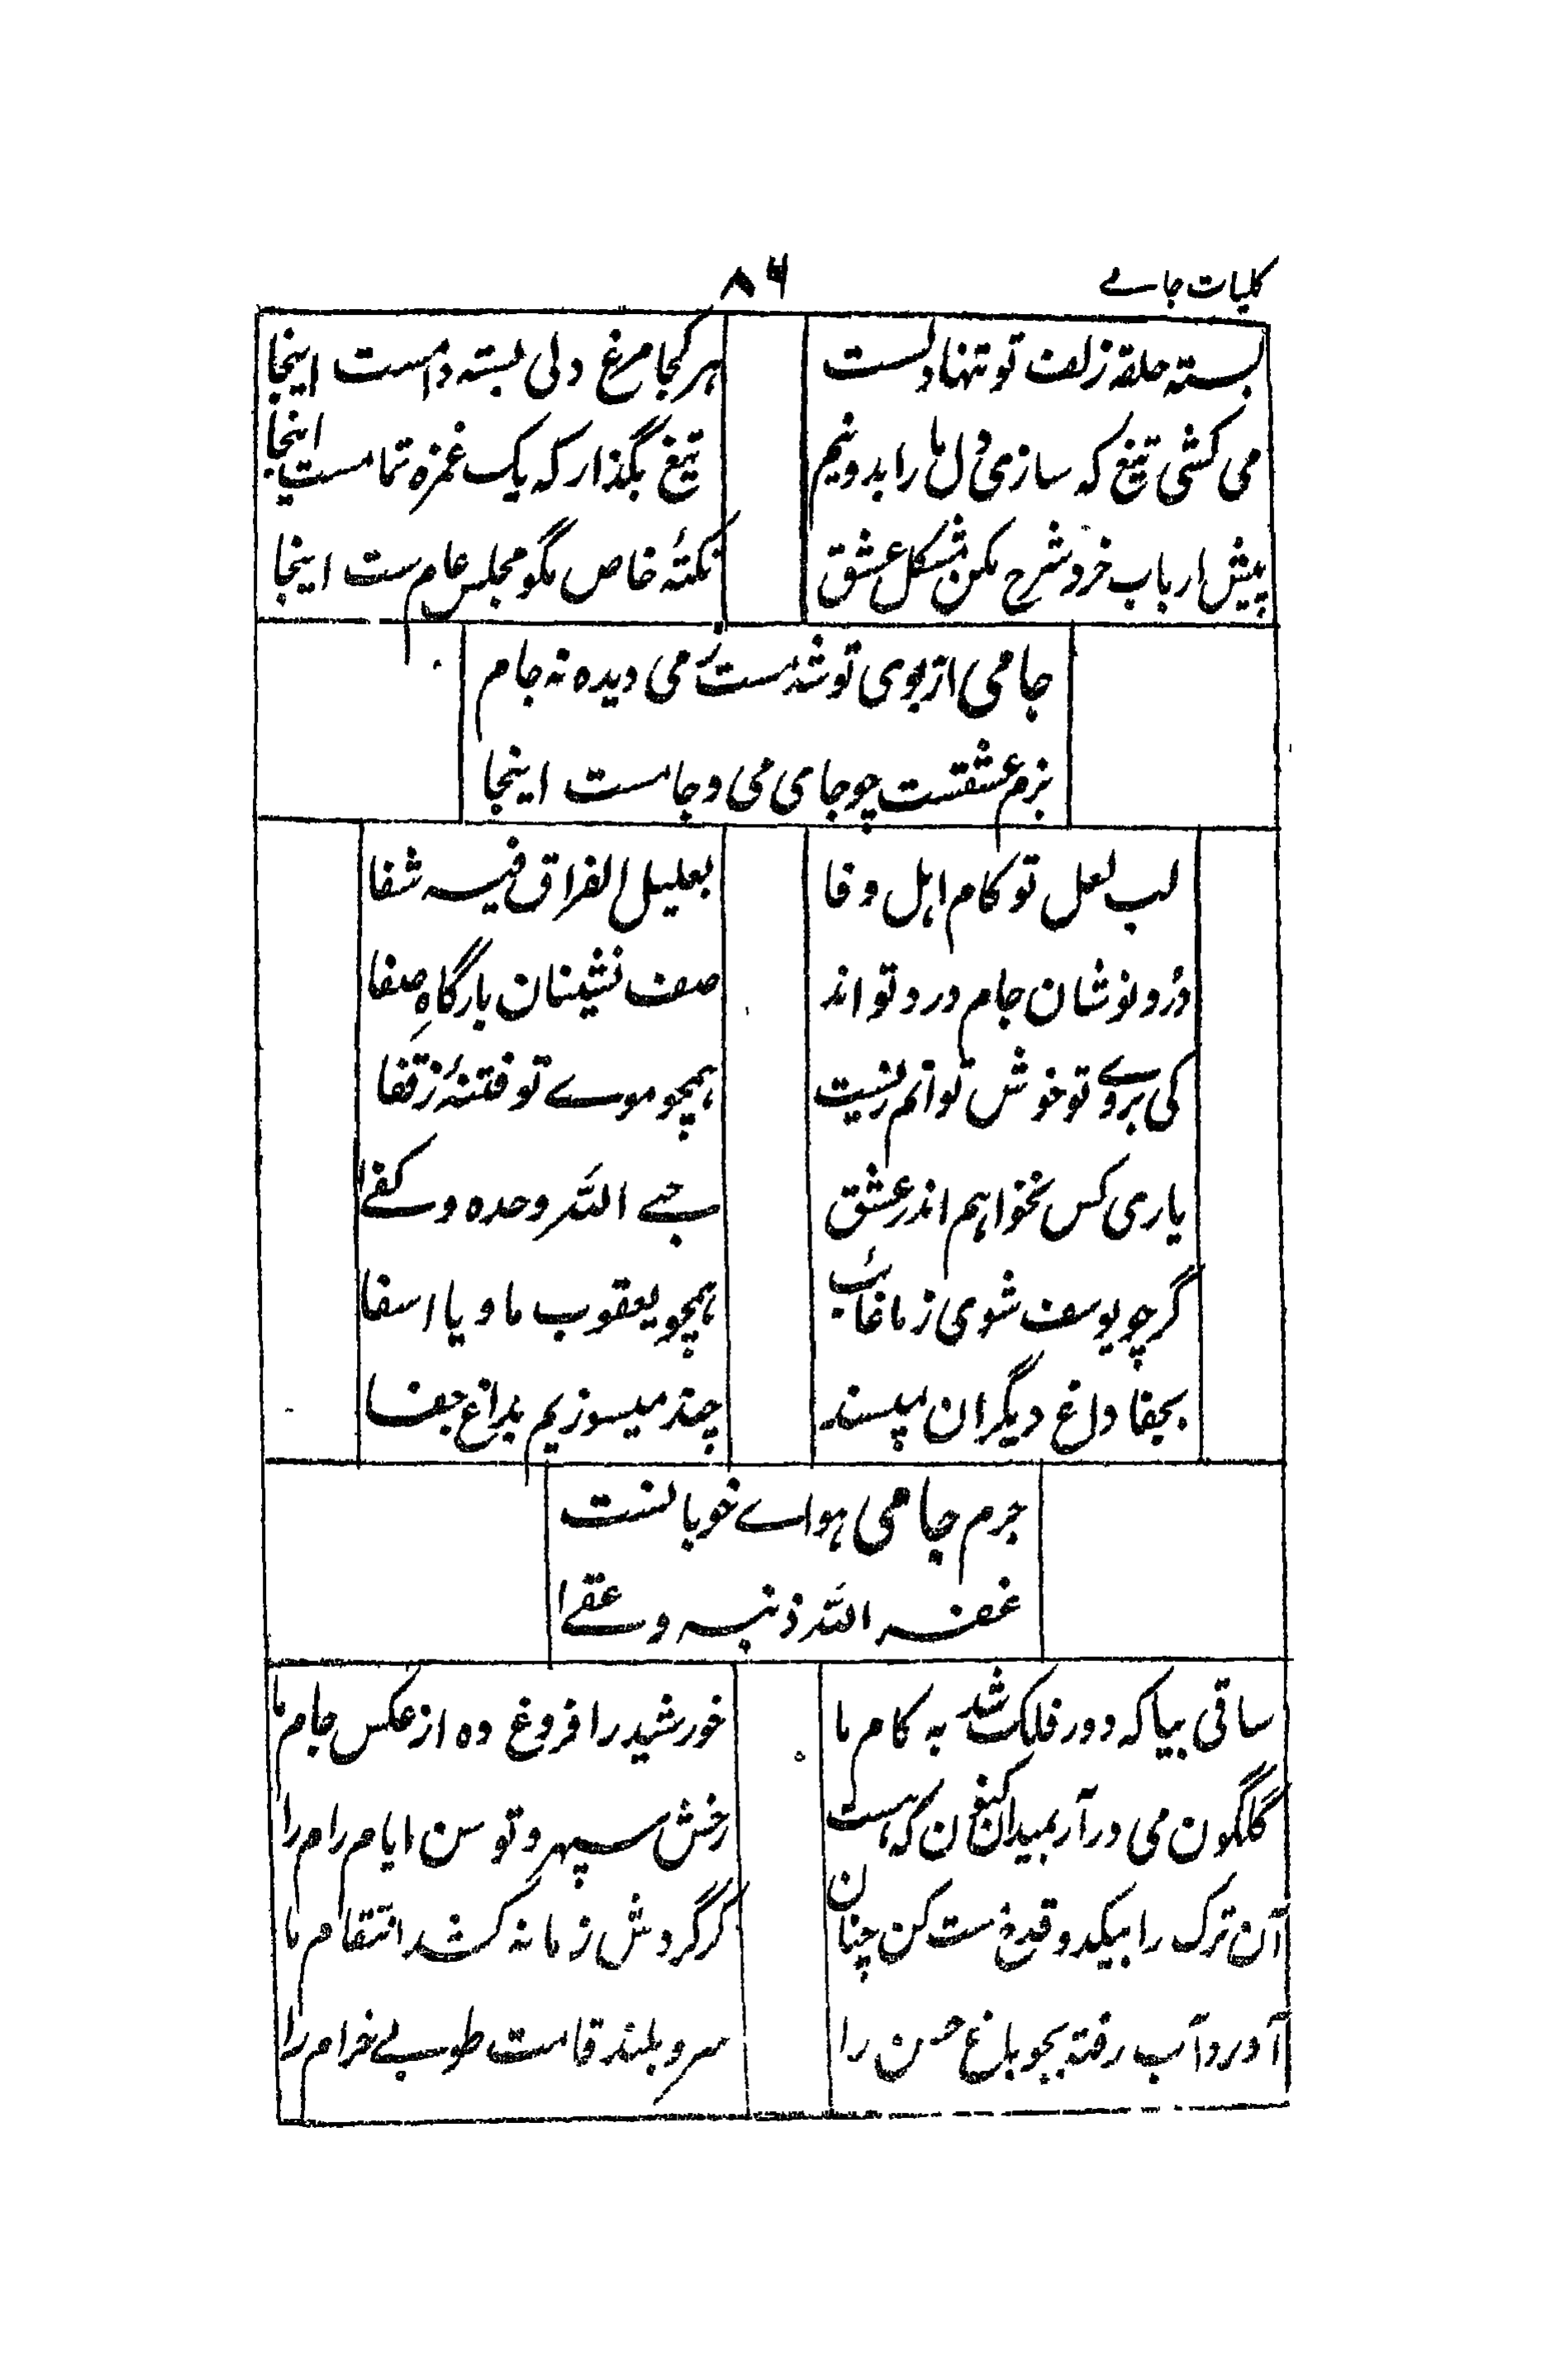 کلیات جامے
۸۶
بستہ حلقہ زلف تو تنہا دلست
ہر کجا مرغ دلی بستہ دامست اینجا
می کشی تیغ کہ سازی دل ما را بدونیم
تیغ بگذار کہ یک غمزہ تمامست اینجا
پیش ارباب خرد شرح مکن مشکل عشق
نکتۂ خاص مگو مجلس عام ست اینجا
جامی از بوی تو شد مست نہ می دیدہ نہ جام
بزم عشقست چو جای می و جامست اینجا
لب لعل تو کام اہل وفا
بعلیل الفراق فیہ شفا
دُرد نوشان جام درد تو اند
صف نشینان بارگاہِ صفا
کی بروے تو خوش توانم زیست
ہمچو موے تو فتنۂ ز قفا
یاری کس نخواہم اندر عشق
حسبے اللہ وحدہ و کفےٰ
گر چو یوسف شوی ز ما غائب
ہمچو یعقوب ما و یا اسفا
بجفا داغ دیگران مپسند
چند میسوزیم بداغ جفا
جرم جامی ہواے خوبانست
غفر اللہ ذنبہ و عفےٰ
ساقی بیا کہ دور فلک شد بہ کام ما
خورشید را فروغ دہ از عکس جام ما
گلگون می درآر بمیدان کنون کہ ہست
رخش سپہر و توسن ایام رام را
آن ترک را بیکدو قدح مست کن چنان
کز گردش زمانہ کشد انتقام ما
آورد آب رفتہ بجو باغ حسن را
سرو بلند قامت طوبے خرام را